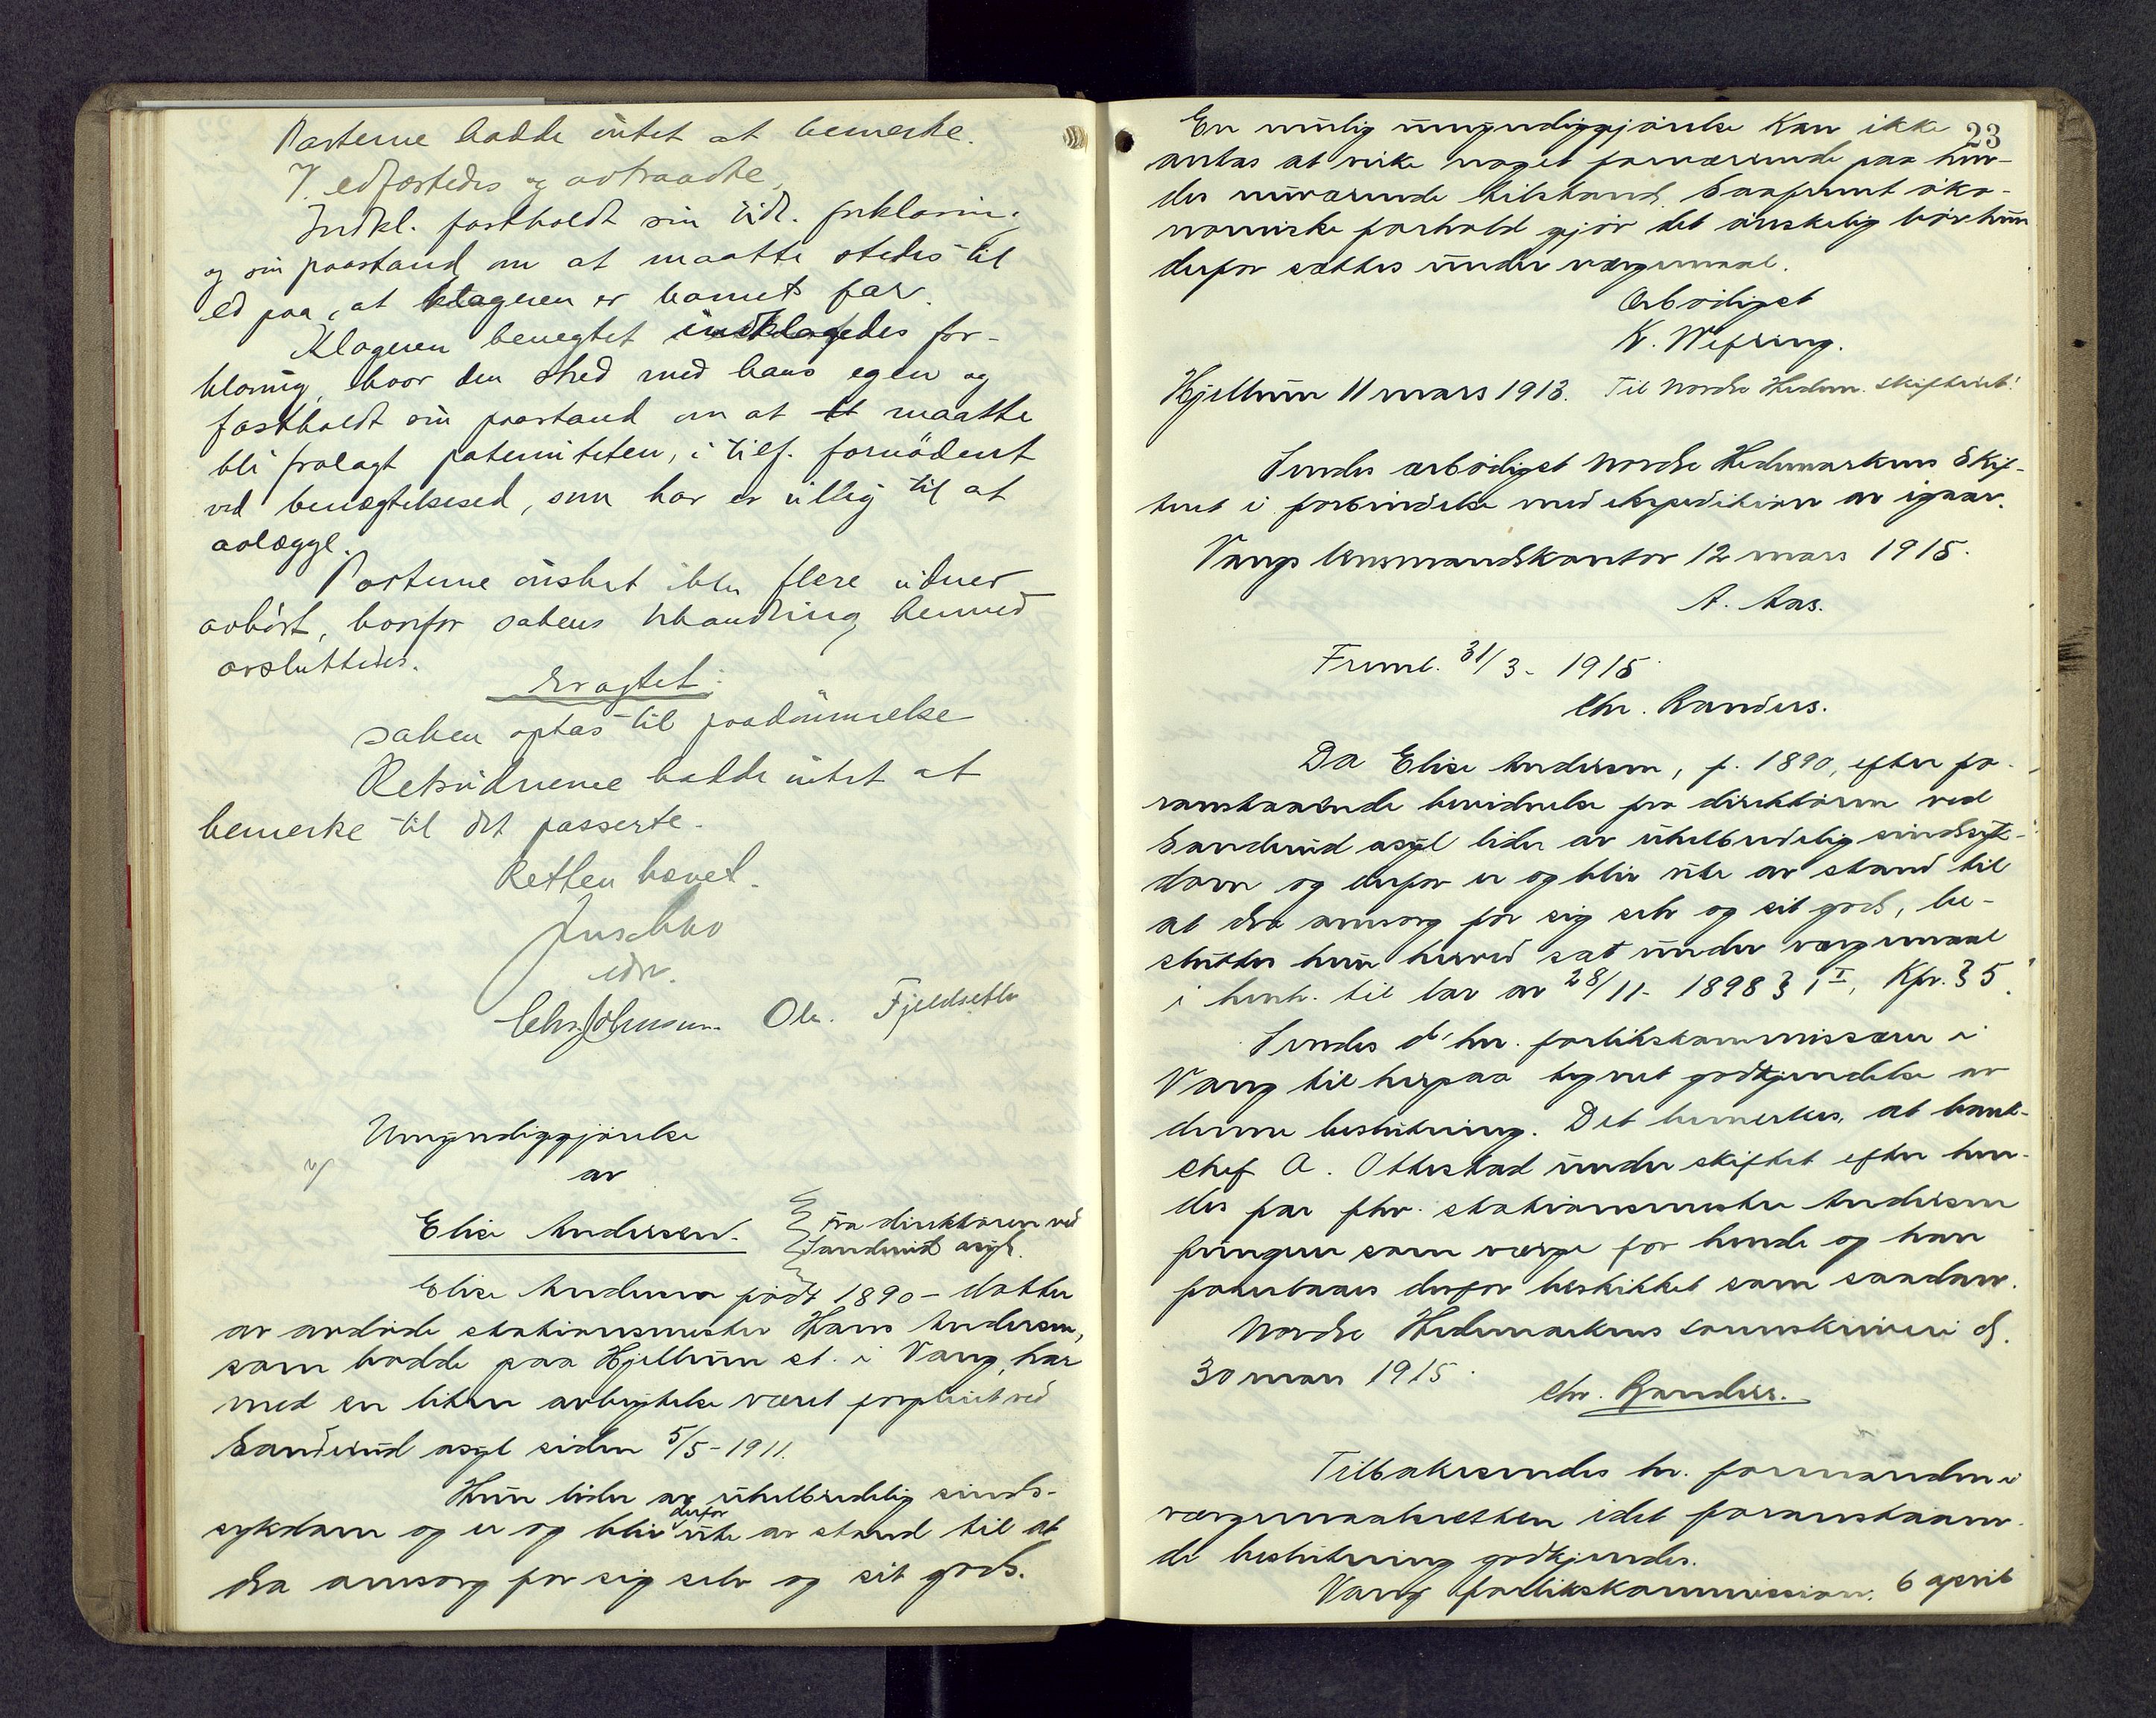 Parterne hadde intet at bemerke.
V. edfæstedes og avtraadte.
Indkl. fastholdt sin tidl. forklaring
og sin paastand om at maatte stedes til
ed paa, at klageren er barnets far.
Klageren benegtet indklagedes for-
klaring, hvor den stred med hans egen og
fastholdt sin paastand om at maatte
bli fralagt paterniteten, i tilf. fornödent
ved benægtelsesed, som han er villig til at
avlægge.
Parterne önsket ikke flere vidner
avhört, hvorfor sakens behandling hermed
avsluttedes.
Eragtet:
saken optas til paadömmelse
Retsvidnerne hadde intet at
bemerke til det passerte.
Retten hævet.
edv.
Chr. Johnsen. Ole Fjeldsetle
Umyndiggjörelse
av
Elise Andersen.
Fra direktören ved
Sanderud asyl.
Elise Andersen född 1890 – datter
av avdöde stationsmester Hans Andersen,
som bodde paa Hjellum st. i Vang, har
med en liten avbrytelse været forpleiet ved
Sanderud asyl siden 5/5-1911.
Hun lider av uhelbredelig sinds-
sykdom og er og blir derfor ute av stand til at
dra omsorg for sig selv og sit gods.
23
En mulig umyndiggjörelse kan ikke
antas at virke noget forværrende paa hen-
des nuværende tilstand. Saafremt öko-
nomiske forhold gjör det önskelig bör hun
derfor sættes under værgemaal.
Ærbödigst
K. Wefring.
Hjellum 11 mars 1913. Til Nordre Hedem. skifteret!
Sendes ærbödigst Nordre Hedemarkens Skif-
teret i forbindelse med ekspedition av igaar.
Vangs lensmandskontor 12 mars 1915.
A. Aas.
Freml. 31/3 - 1915.
Chr. Randers.
Da Elise Andersen, f. 1890, efter fo-
ranstaaende bevidnelse fra direktören ved
Sanderud asyl lider av uhelbredelig sindssyk-
dom og derfor er og blir ute av stand til
at dra omsorg for sig selv og sit gods, be-
sluttes hun herved sat under værgemaal
i henh. til lov av 28/11 - 1898 § 1 I, Kfr. § 5.
Sendes d'hr. forlikskommissærer i
Vang til herpaa tegnet godkjendelse av
denne beslutning. Det bemerkes, at bank-
chef A. Ottestad under skiftet efter hen-
des far fhv. stationsmester Andersen
fungerer som værge for hende og han
foreslaaes derfor beskikket som saadan.
Nordre Hedemarkens sorenskriveri d.
30 mars 1915.
Chr. Randers.
Tilbakesendes hr. formanden i
værgemaalsretten idet foranstaaen-
de beslutning godkjendes.
Vang forlikskommission. 6 april